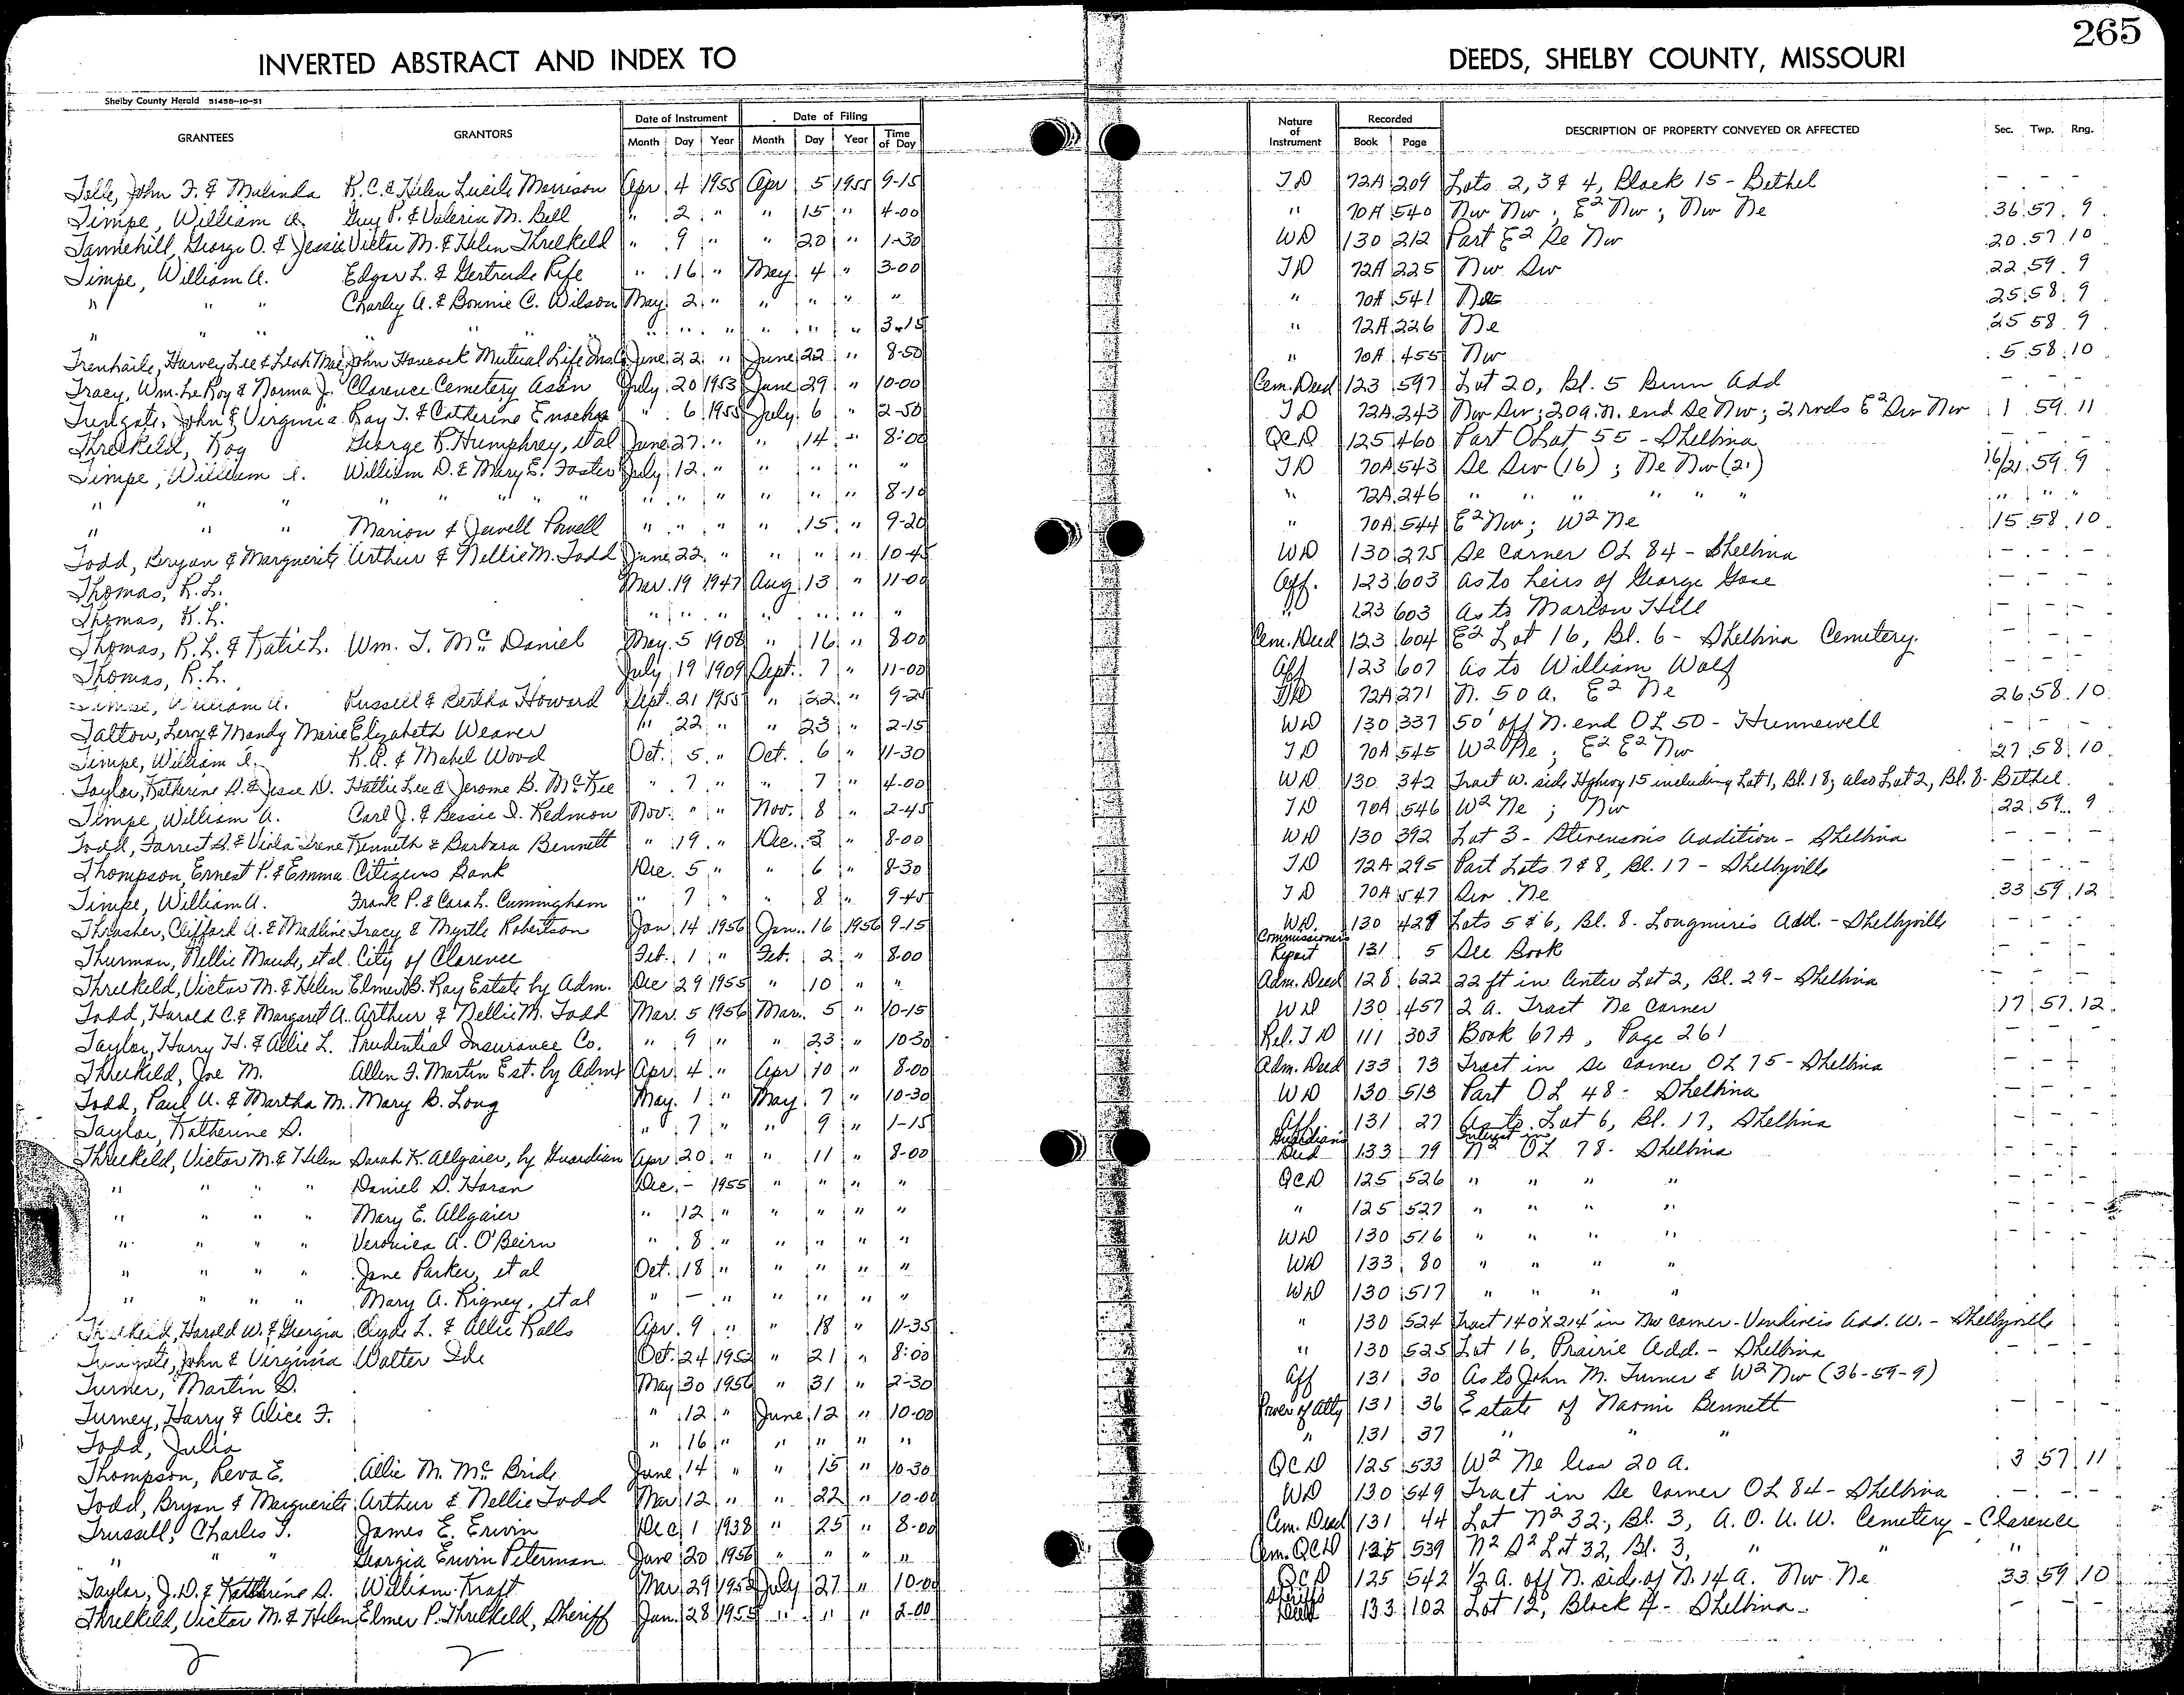 265
INVERTED ABSTRACT AND INDEX TO DEEDS, SHELBY COUNTY, MISSOURI
Shelby County Herald 51458-10-51
GRANTEES GRANTORS Date of Instrument Date of Filing Nature of Instrument Recorded DESCRIPTION OF PROPERTY CONVEYED OR AFFECTED Sec. Twp. Rng.
Month Day Year Month Day Year Time of Day Book Page
John F. & Malinda R.C. & Helen Lucile Morrison Apr 4 1955 Apr 5 1955 9-15 TD 72A 209 Lots 2, 3 & 4, Block 15 - Bethel - - -
Timpe, William A. Guy P. & Valeria M. Bell " 2 " " 15 " 4-00 " 70A 540 Nw Nw; E² Nw; Nw Ne 36 57 9
Tannehill, George O. & Jessie Victor M. & Helen Threlkeld " 9 " " 20 " 1-30 WD 130 212 Part E² Se Nw 20 57 10
Timpe, William A. Edgar L. & Gertrude Rife " 16 " May 4 " 3-00 TD 72A 225 Nw Sw 22 59 9
" " " Charley A. & Bonnie C. Wilson May 2 " " " " " " 70A 541 Ne 25 58 9
" " " " " " " " " " " 3-15 " 72A 226 Ne 25 58 9
Trenhaile, Harvey Lee & Leah Mae John Hancock Mutual Life Ins Co June 22 " June 22 " 8-50 " 70A 455 Nw 5 58 10
Tracy, Wm. LeRoy & Norma J. Clarence Cemetery Ass'n July 20 1953 June 29 " 10-00 Cem. Deed 123 597 Lot 20, Bl. 5 Bunn Add - - -
Tungate, John & Virginia Ray T. & Catherine Enochs " 6 1955 July 6 " 2-50 TD 72A 243 Nw Sw; 20a. N. end Se Nw; 2 rods E² Sw Nw 1 59 11
Threlkeld, Roy George R. Humphrey, et al June 27 " " 14 " 8:00 QCD 125 460 Part OLot 55 - Shelbina - - -
Timpe, William A. William D. & Mary E. Foster July 12 " " " " " TD 70A 543 Se Sw (16); Ne Nw (21) 16/21 59 9
" " " " " " " " " " " " " 8-10 " 72A 246 " " " " " " " " "
" " " Marion & Jewell Powell " " " " 15 " 9-20 " 70A 544 E² Nw; W² Ne 15 58 10
Todd, Bryan & Marguerite Arthur & Nellie M. Todd June 22 " " " " 10-45 WD 130 275 Se Corner OL 84 - Shelbina - - -
Thomas, R.L. Mar. 19 1947 Aug 13 " 11-00 Aff. 123 603 As to heirs of George Gose - - -
Thomas, R.L. " " " " " " " " 123 603 As to Marion Hill - - -
Thomas, R.L. & Katie L. Wm. T. McDaniel May 5 1908 " 16 " 8-00 Cem. Deed 123 604 E² Lot 16, Bl. 6 - Shelbina Cemetery. - - -
Thomas, R.L. July 19 1909 Sept. 7 " 11-00 Aff 123 607 As to William Wolf - - -
Timpe, William A. Russell & Bertha Howard Sept. 21 1955 " 22 " 9-25 TD 72A 271 N. 50 a. E² Ne 26 58 10
Tatton, Leroy & Mandy Marie Elizabeth Weaver " 22 " " 23 " 2-15 WD 130 337 50' off N. end OL 50 - Hunnewell - - -
Timpe, William A. R.A. & Mabel Wood Oct. 5 " Oct. 6 " 11-30 TD 70A 545 W² Ne; E² E² Nw 27 58 10
Taylor, Katherine S. & Jesse D. Hattie Lee & Jerome B. McKee " 7 " " 7 " 4-00 WD 130 342 Tract W. side Highway 15 including Lot 1, Bl. 18; also Lot 2, Bl. 8 - Bethel
Timpe, William A. Carl J. & Bessie I. Redmon Nov. " " Nov. 8 " 2-45 TD 70A 546 W² Ne; Nw 22 59 9
Todd, Forrest S. & Viola Irene Kenneth & Barbara Bennett " 19 " Dec. 3 " 8-00 WD 130 392 Lot 3 - Stevenson's Addition - Shelbina - - -
Thompson, Ernest P. & Emma Citizens Bank Dec. 5 " " 6 " 8-30 TD 72A 295 Part Lots 7 & 8, Bl. 17 - Shelbyville - - -
Timpe, William A. Frank P. & Cara L. Cunningham " 7 " " 8 " 9-45 TD 70A 547 Sw Ne 33 59 12
Thrasher, Clifford A. & Madline Tracy & Myrtle Robertson Jan 14 1956 Jan. 16 1956 9-15 WD. 130 428 Lots 5 & 6, Bl. 8. Longmire's Add. - Shelbyville - - -
Thurman, Nellie Maude, et al City of Clarence Feb. 1 " Feb. 2 " 8-00 Commissioner's Report 131 5 See Book - - -
Threlkeld, Victor M. & Helen Elmer B. Ray Estate by Adm. Dec 29 1955 " 10 " " Adm. Deed 128 622 22 ft in Center Lot 2, Bl. 29 - Shelbina - - -
Todd, Harold C. & Margaret A. Arthur & Nellie M. Todd Mar. 5 1956 Mar. 5 " 10-15 WD 130 457 2 a. Tract Ne corner 17 57 12
Taylor, Harry H. & Allie L. Prudential Insurance Co. " 9 " " 23 " 10-30 Rel. TD 111 303 Book 67A, Page 261 - - -
Threlkeld, Joe M. Allen F. Martin Est. by Admx Apr 4 " Apr 10 " 8-00 Adm. Deed 133 73 Tract in Se corner OL 75 - Shelbina - - -
Todd, Paul U. & Martha M. Mary B. Long May 1 " May 7 " 10-30 WD 130 513 Part OL 48 - Shelbina - - -
Taylor, Katherine S. " 7 " " 9 " 1-15 Aff. 131 27 As to Lot 6, Bl. 17, Shelbina - - -
Threlkeld, Victor M. & Helen Sarah K. Allgaier, by Guardian Apr 20 " " 11 " 8-00 Guardian's Deed 133 79 Interest in N² OL 78 - Shelbina - - -
" " " " Daniel S. Horan Dec. - 1955 " " " " QCD 125 526 " " " " - - -
" " " " Mary E. Allgaier " 12 " " " " " " 125 527 " " " "
" " " " Veronica A. O'Beirn " 8 " " " " " WD 130 516 " " " "
" " " " Jane Parker, et al Oct. 18 " " " " " WD 133 80 " " " "
" " " " Mary A. Rigney, et al " - " " " " " WD 130 517 " " " "
Threlkeld, Harold W. & Georgia Clyde L. & Allie Ralls Apr. 9 " " 18 " 11-35 " 130 524 Tract 140'X214' in Nw corner - Add. W. - Shelbyville
Tungate, John & Virginia Walter Ide Oct. 24 1952 " 21 " 8:00 " 130 525 Lot 16, Prairie Add. - Shelbina - - -
Turner, Martin S. May 30 1956 " 31 " 2-30 Aff 131 30 As to John M. Turner & W² Nw (36-59-9)
Turney, Harry & Alice F. " 12 " June 12 " 10-00 Power of Atty 131 36 Estate of Naomi Bennett - - -
Todd, Julia " 16 " " " " " " 131 37 " " " - - -
Thompson, Reva E. Allie M. McBride June 14 " " 15 " 10-30 QCD 125 533 W² Ne less 20 a. 3 57 11
Todd, Bryan & Marguerite Arthur & Nellie Todd Mar 12 " " 22 " 10-00 WD 130 549 Tract in Se corner OL 84 - Shelbina - - -
Trussell, Charles T. James E. Erwin Dec 1 1938 " 25 " 8-00 Cem. Deed 131 44 Lot N² 32, Bl. 3, A.O.U.W. Cemetery - Clarence
" " " Georgia Erwin Peterman June 20 1956 " " " " Cem. QCD 125 539 N² S² Lot 32, Bl. 3, " " "
Taylor, J.D. & Katherine S. William Kraft Mar 29 1952 July 27 " 10-00 QCD 125 542 1/2 a. off N. side of N. 14 a. Nw Ne 33 59 10
Threlkeld, Victor M. & Helen Elmer P. Threlkeld, Sheriff Jan. 28 1955 " " " 2-00 Sheriff's Deed 133 102 Lot 12, Block 4 - Shelbina - - -